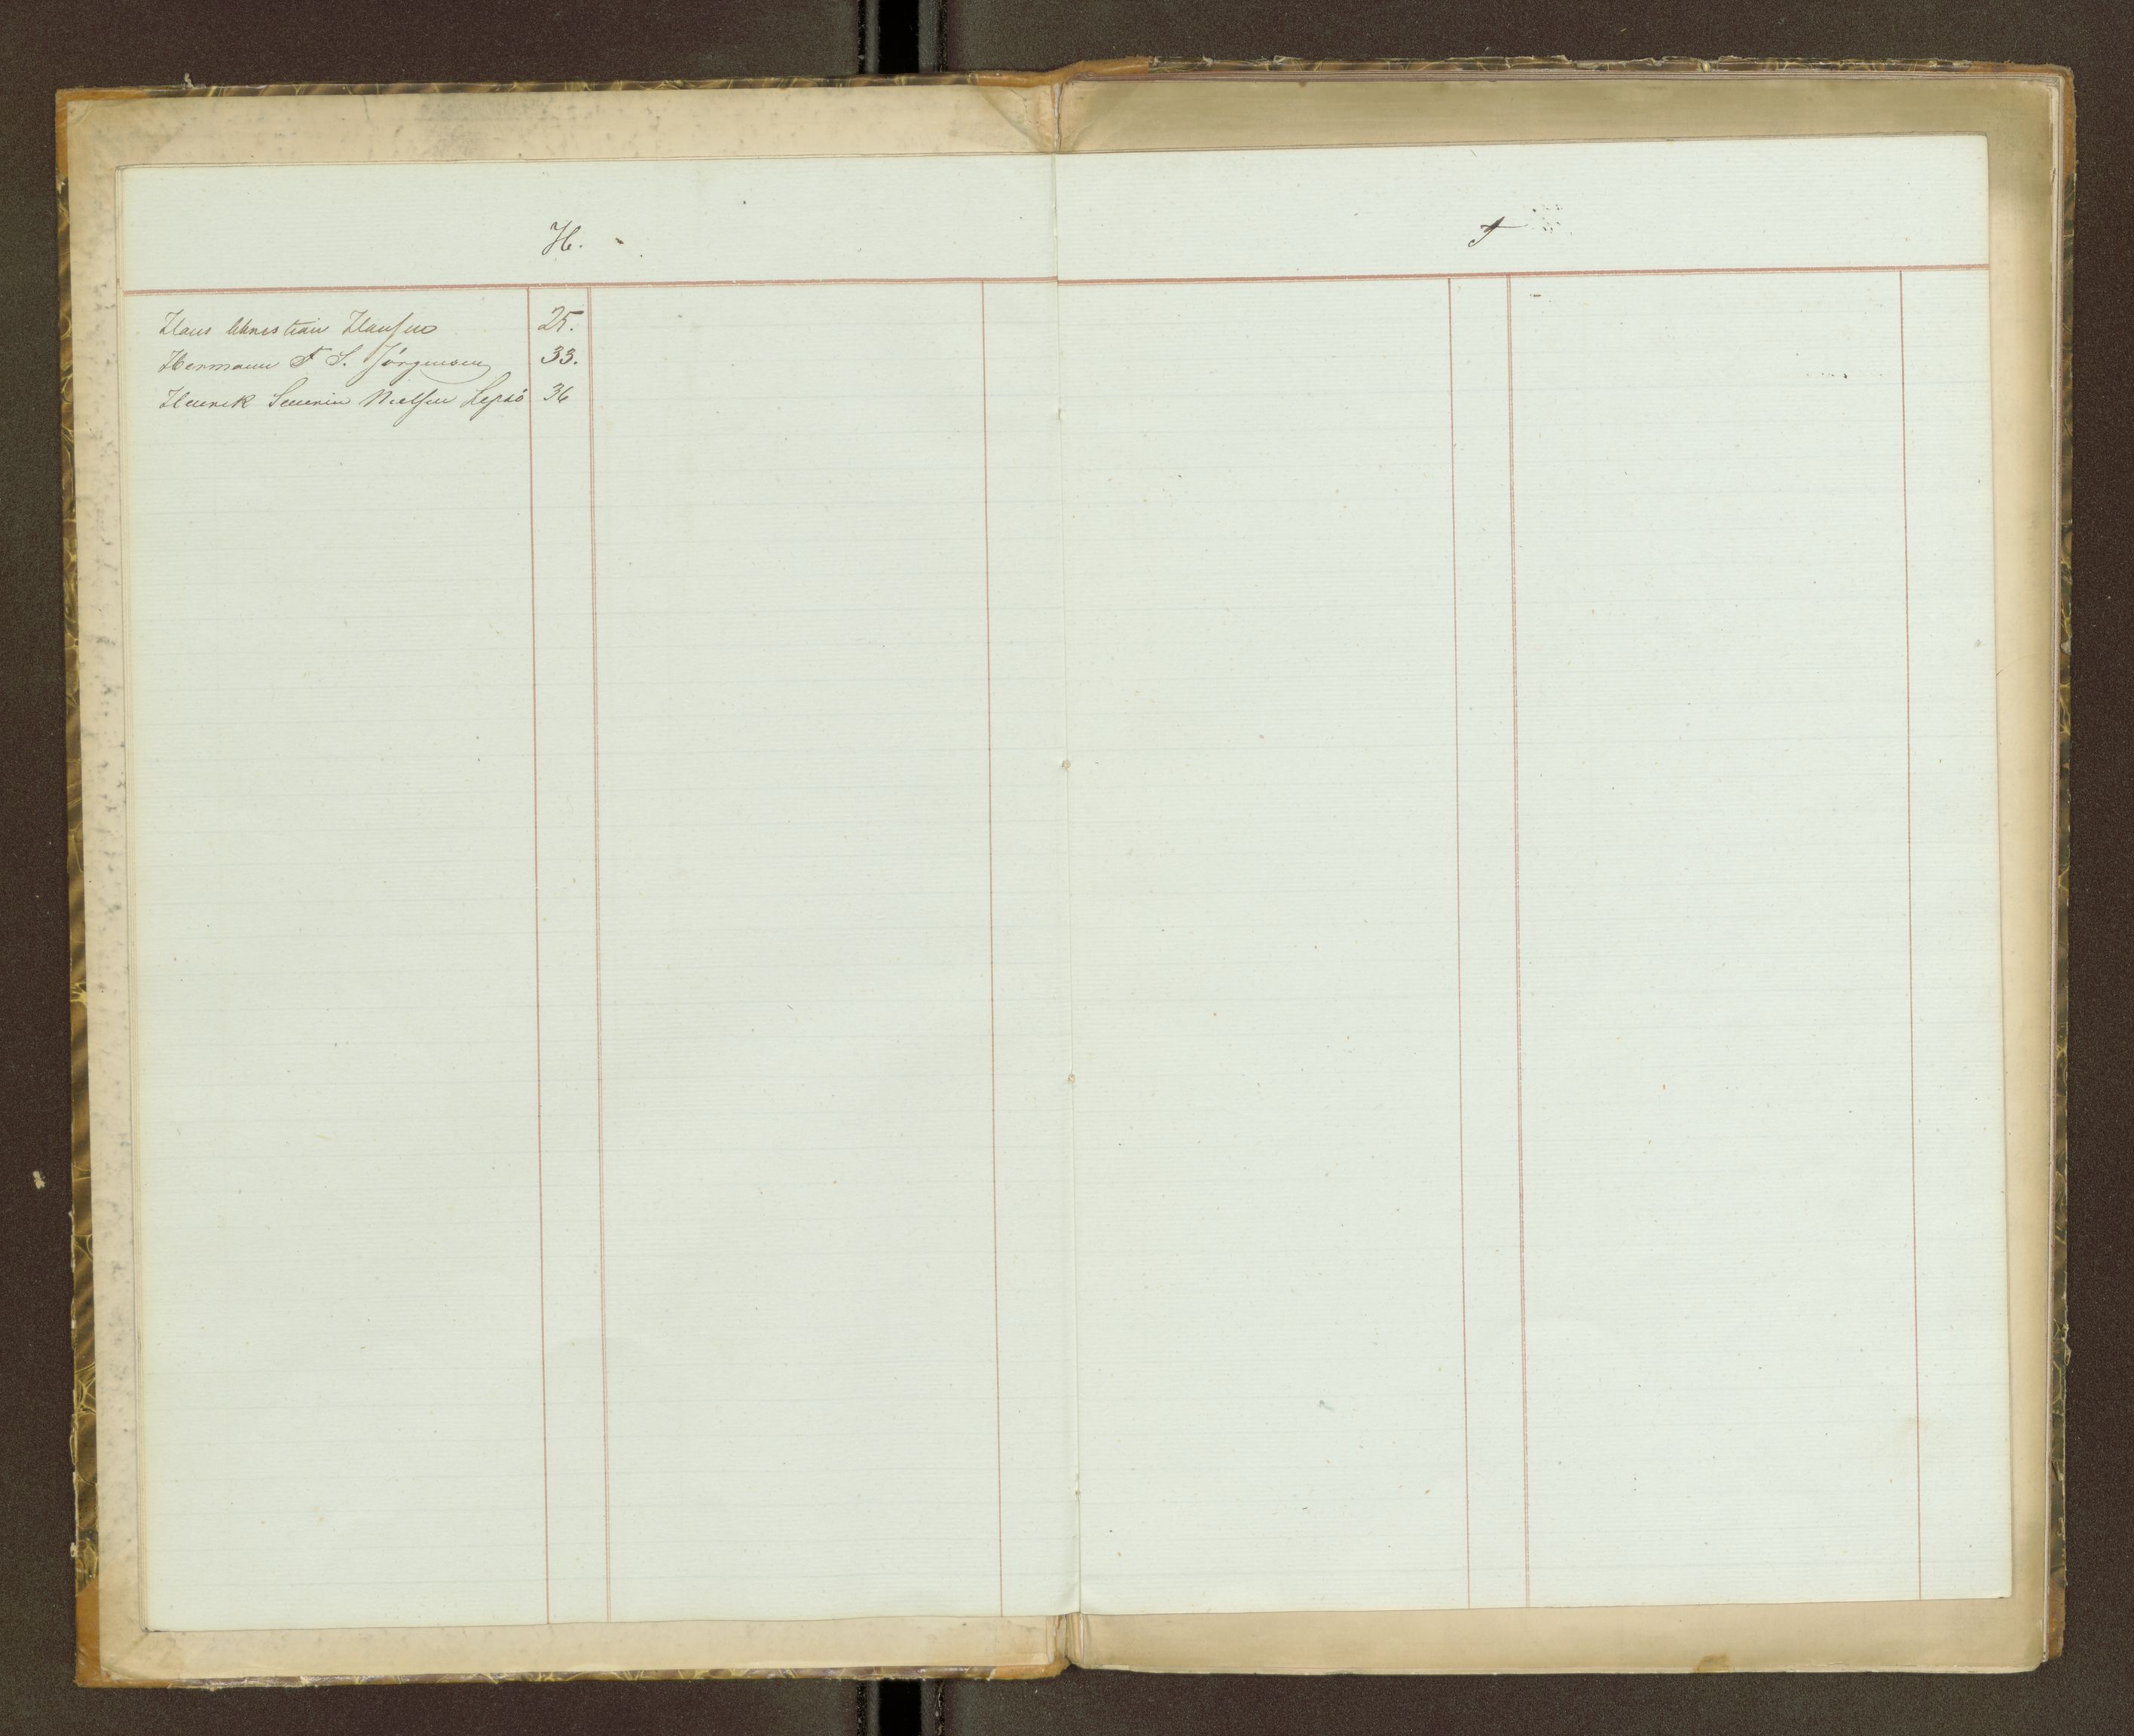 H.
Hans Christian Hansen 25.
Hermann F S. Jörgensen 33.
Henrik Severin Nielsen 36